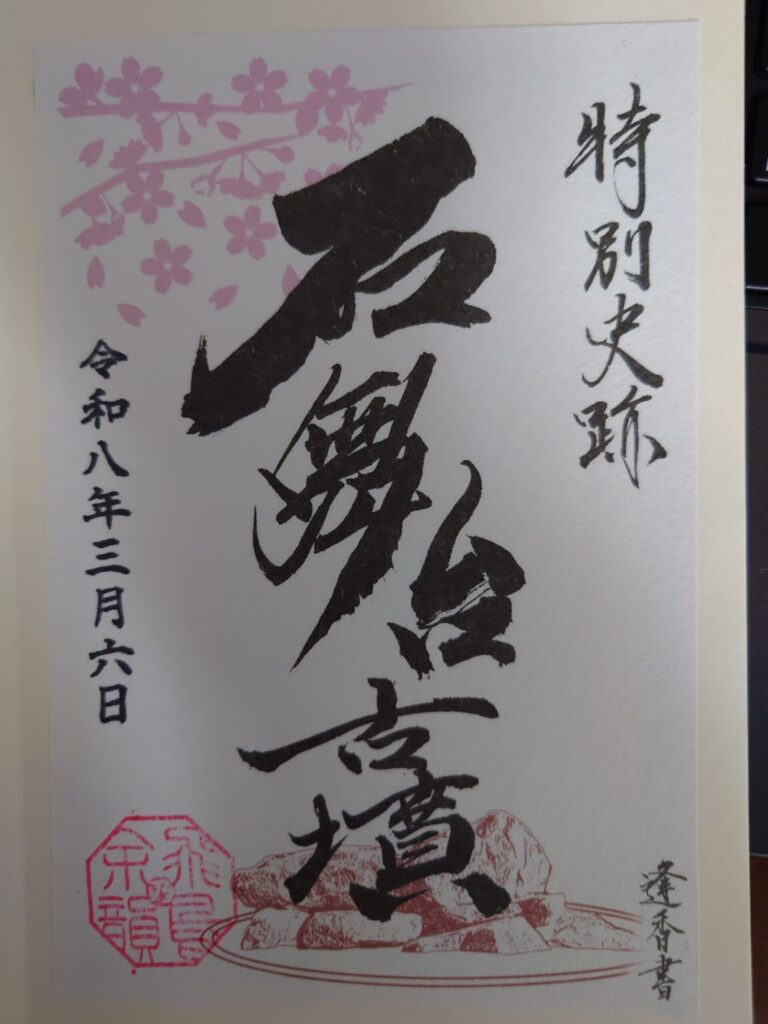 特別史跡
石舞台古墳
令和八年三月六日
飛鳥乃余韻
逢香書